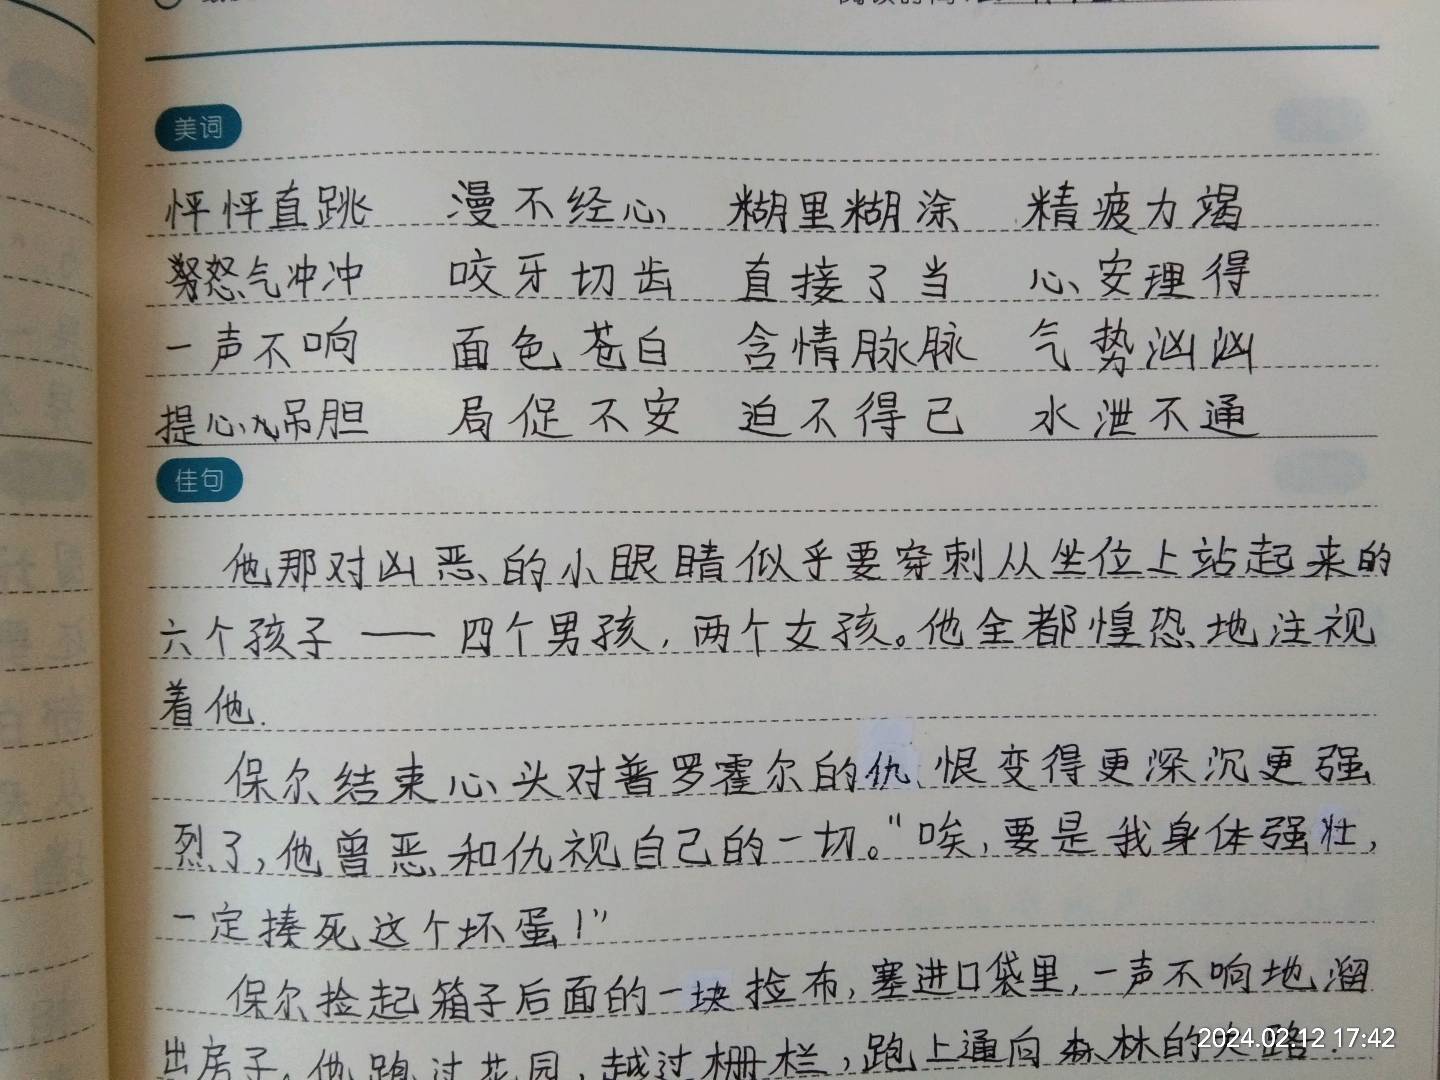 美词
怦怦直跳 漫不经心 糊里糊涂 精疲力竭
怒气冲冲 咬牙切齿 直接了当 心安理得
一声不响 面色苍白 含情脉脉 气势汹汹
提心吊胆 局促不安 迫不得已 水泄不通
佳句
他那对凶恶的小眼睛似乎要穿刺从坐位上站起来的
六个孩子——四个男孩,两个女孩。他全都惶恐地注视
着他.
保尔结束心头对普罗霍尔的仇恨变得更深沉更强
烈了,他曾恶和仇视自己的一切。"唉,要是我身体强壮,
一定揍死这个坏蛋!"
保尔捡起箱子后面的一块捡布,塞进口袋里,一声不响地溜
出房子。他跑过花园,越过栅栏,跑上通向森林的大路.
2024.02.12 17:42